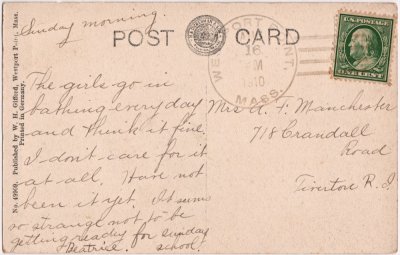 Sunday morning
POST CARD
WESTPORT POINT,
16
M
1910
MASS.
U.S. POSTAGE
ONE CENT
No. 49969. Published by W. H. Gifford, Westport Point, Mass.
Printed in Germany.
The girls go in
bathing everyday
and think it fine.
I don't care for it
at all. Have not
been it yet. It seems
so strange not to be
getting ready for sunday
school.
Beatrice.
Mrs A. F. Manchester
718 Crandall
Road
Tiverton R. I.